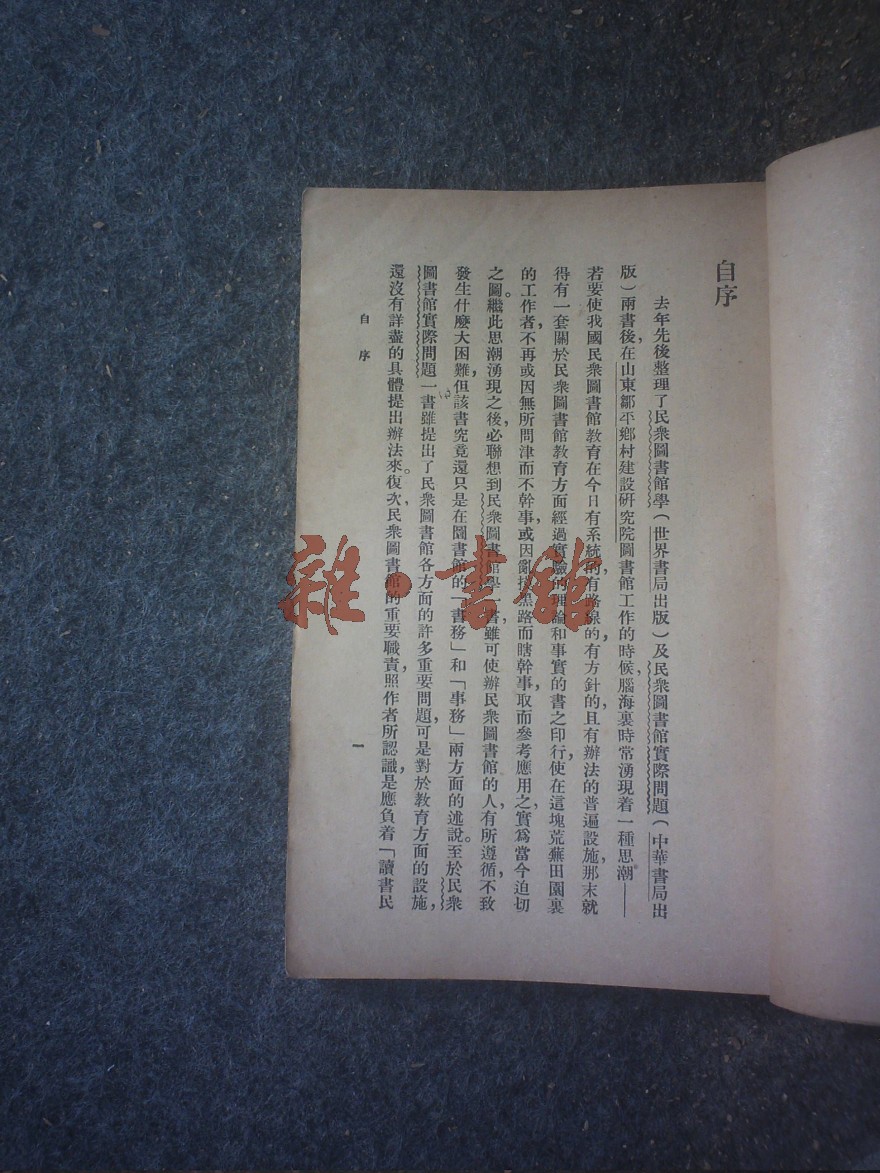 自序
去年先後整理了民衆圖書館學（世界書局出版）及民衆圖書館實際問題（中華書局出
版）兩書後，在山東鄒平鄉村建設研究院圖書館工作的時候，腦海裏時常湧現着一種思潮——
若要使我國民衆圖書館教育在今日有系統的，有路線的，有方針的，且有辦法的普遍設施，那末就
得有一套關於民衆圖書館教育方面經過實驗的理論和事實的書之印行，使在這塊荒蕪田園裏
的工作者，不再或因無所問津而不幹事，或因亂摸黑路而瞎幹事，取而參考應用之，實爲當今迫切
之圖。繼此思潮湧現之後，必聯想到民衆圖書館學一書，雖可使辦民衆圖書館的人有所遵循，不致
發生什麼大困難，但該書究竟還只是在圖書館的「書務」和「事務」兩方面的述說。至於民衆
圖書館實際問題一書雖提出了民衆圖書館各方面的許多重要問題，可是對於教育方面的設施，
還沒有詳盡的具體提出辦法來。復次，民衆圖書館的重要職責，照作者所認識，是應負着「讀書民
自序
一
雜·書館